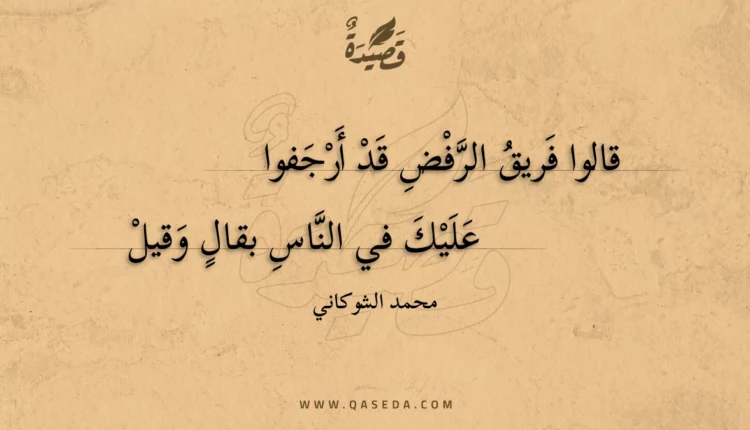 قَصِيدَةٌ
قالوا فَريقُ الرَّفْضِ قَدْ أَرْجَفوا
عَلَيْكَ في النَّاسِ بقالٍ وَقيلْ
محمد الشوكاني
WWW.QASEDA.COM